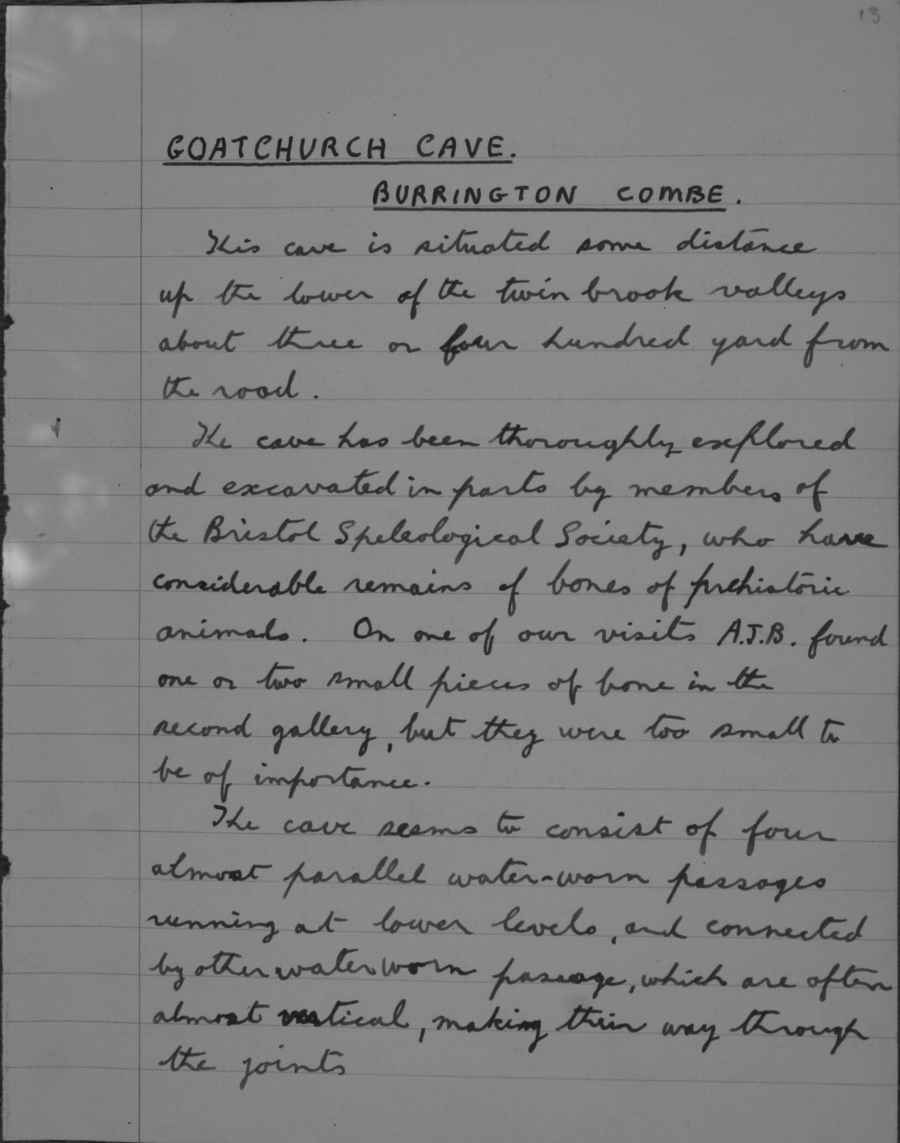 13
GOATCHURCH CAVE.
BURRINGTON COMBE.
This cave is situated some distance
up the lower of the twin brook valleys
about three or four hundred yard from
the road.
The cave has been thoroughly explored
and excavated in parts by members of
the Bristol Speleological Society, who have
considerable remains of bones of prehistoric
animals. On one of our visits A.J.B. found
one or two small pieces of bone in the
second gallery, but they were too small to
be of importance.
The cave seems to consist of four
almost parallel water-worn passages
running at lower levels, and connected
by other water worn passage, which are often
almost vertical, making their way through
the joints